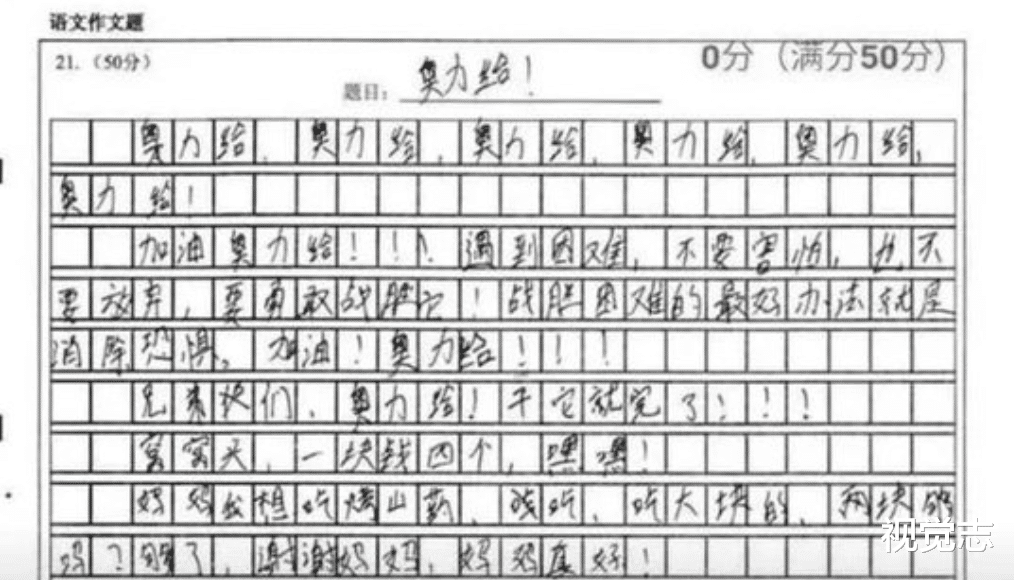 语文作文题
21.（50分）
0分（满分50分）
题目：奥力给！
奥力给，奥力给，奥力给，奥力给，奥力给，
奥力给！
加油奥力给！！！遇到困难，不要害怕，也不
要放弃，要勇敢战胜它！战胜困难的最好办法就是
消除恐惧。加油！奥力给！！！
兄弟们，奥力给！干它就完了！！！
窝窝头，一块钱四个，嘿嘿！
妈妈我想吃烤山药，吃，吃大块的，两块够
吗？够了，谢谢妈妈，妈妈真好！
视觉志